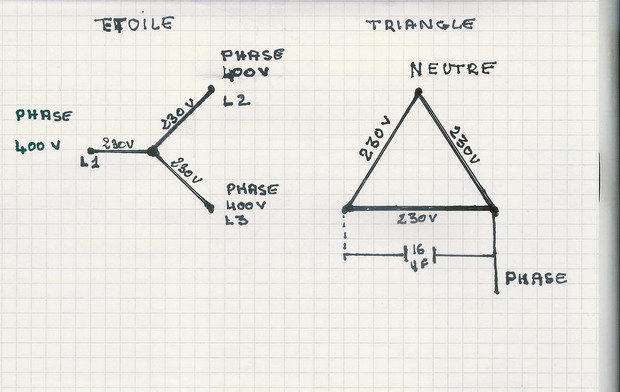 ETOILE
PHASE
400V
L2
230V
PHASE
400V
230V
L1
230V
PHASE
400V
L3
TRIANGLE
NEUTRE
230V
230V
230V
16
µF
PHASE